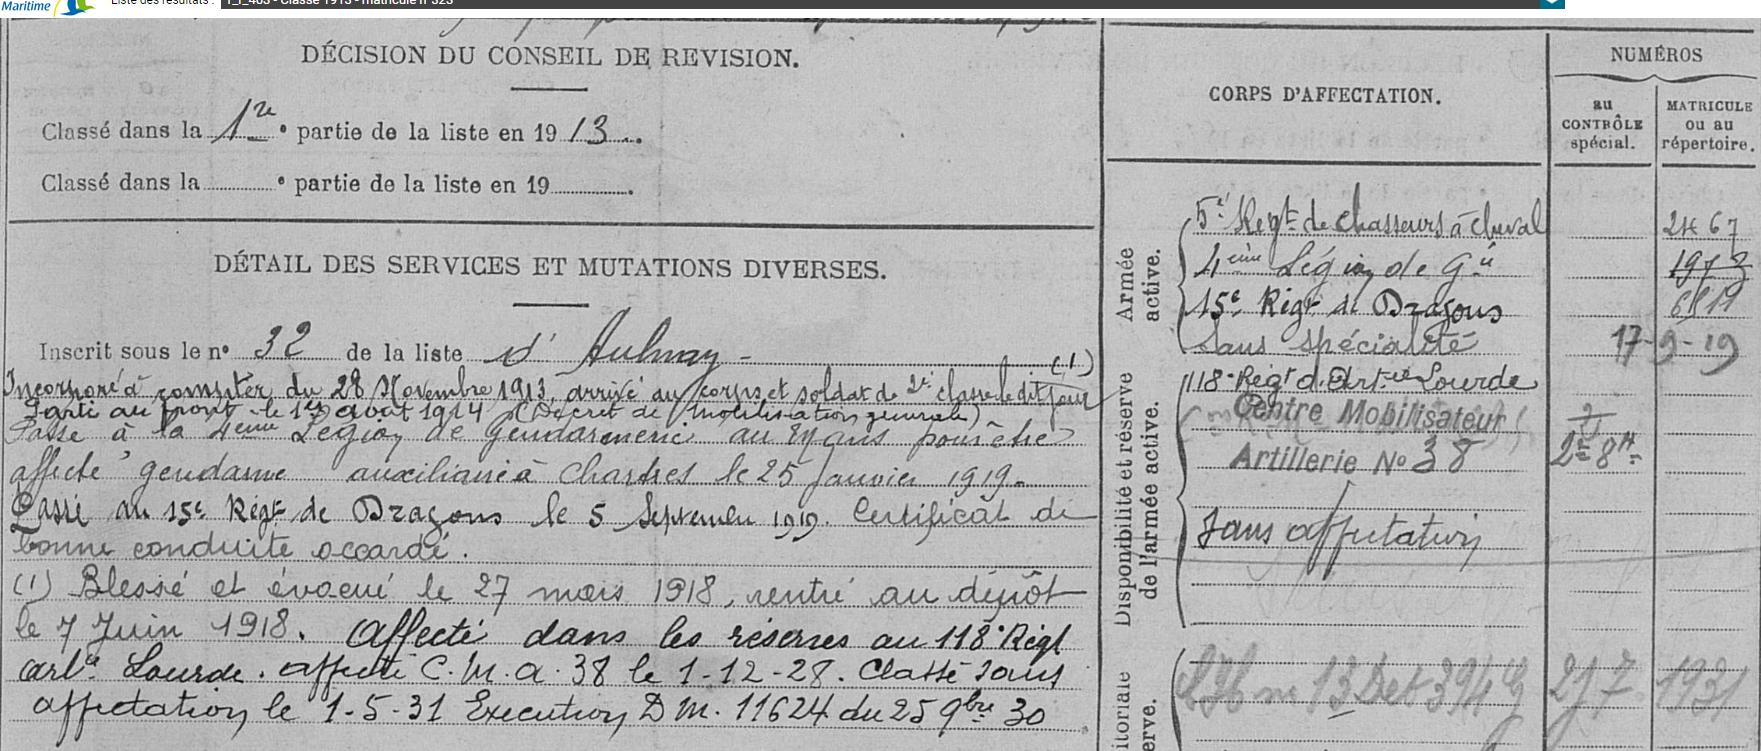 Maritime
Liste des résultats : 1_r_403 - Classe 1913 - matricule n° 323
DÉCISION DU CONSEIL DE REVISION.
Classé dans la 1re e partie de la liste en 1913
Classé dans la e partie de la liste en 19
DÉTAIL DES SERVICES ET MUTATIONS DIVERSES.
Inscrit sous le n° 32 de la liste d'Aulnay - (1)
Incorporé à compter du 28 Novembre 1913, arrivé au corps et soldat de 2e classe le dit jour
Parti au front le 1er août 1914 (Décret de mobilisation générale)
Passé à la 4ème Légion de Gendarmerie au Mans pour être
affecté gendarme auxiliaire à Chartres le 25 Janvier 1919.
Passé au 15e Régt de Dragons le 5 Septembre 1919. Certificat de
bonne conduite accordé.
(1) Blessé et évacué le 27 mars 1918, rentré au dépôt
le 7 Juin 1918. Affecté dans les réserves au 118e Régt
artie Lourde. affecté C.M.a. 38 le 1-12-28. Classé sans
affectation le 1-5-31 Execution D.M. 11624 du 25 9bre 30
CORPS D'AFFECTATION.
NUMÉROS
au CONTRÔLE spécial.
MATRICULE ou au répertoire.
Armée active.
5e Regt de chasseurs à cheval 2467
4ème Légion de Gie
15e Régt de Dragons
Sans spécialité 17-9-19
Disponibilité et réserve de l'armée active.
118e Régt d'Art.ie Lourde
Centre Mobilisateur
Artillerie No 38
Sans affectation
itoriale
erve.